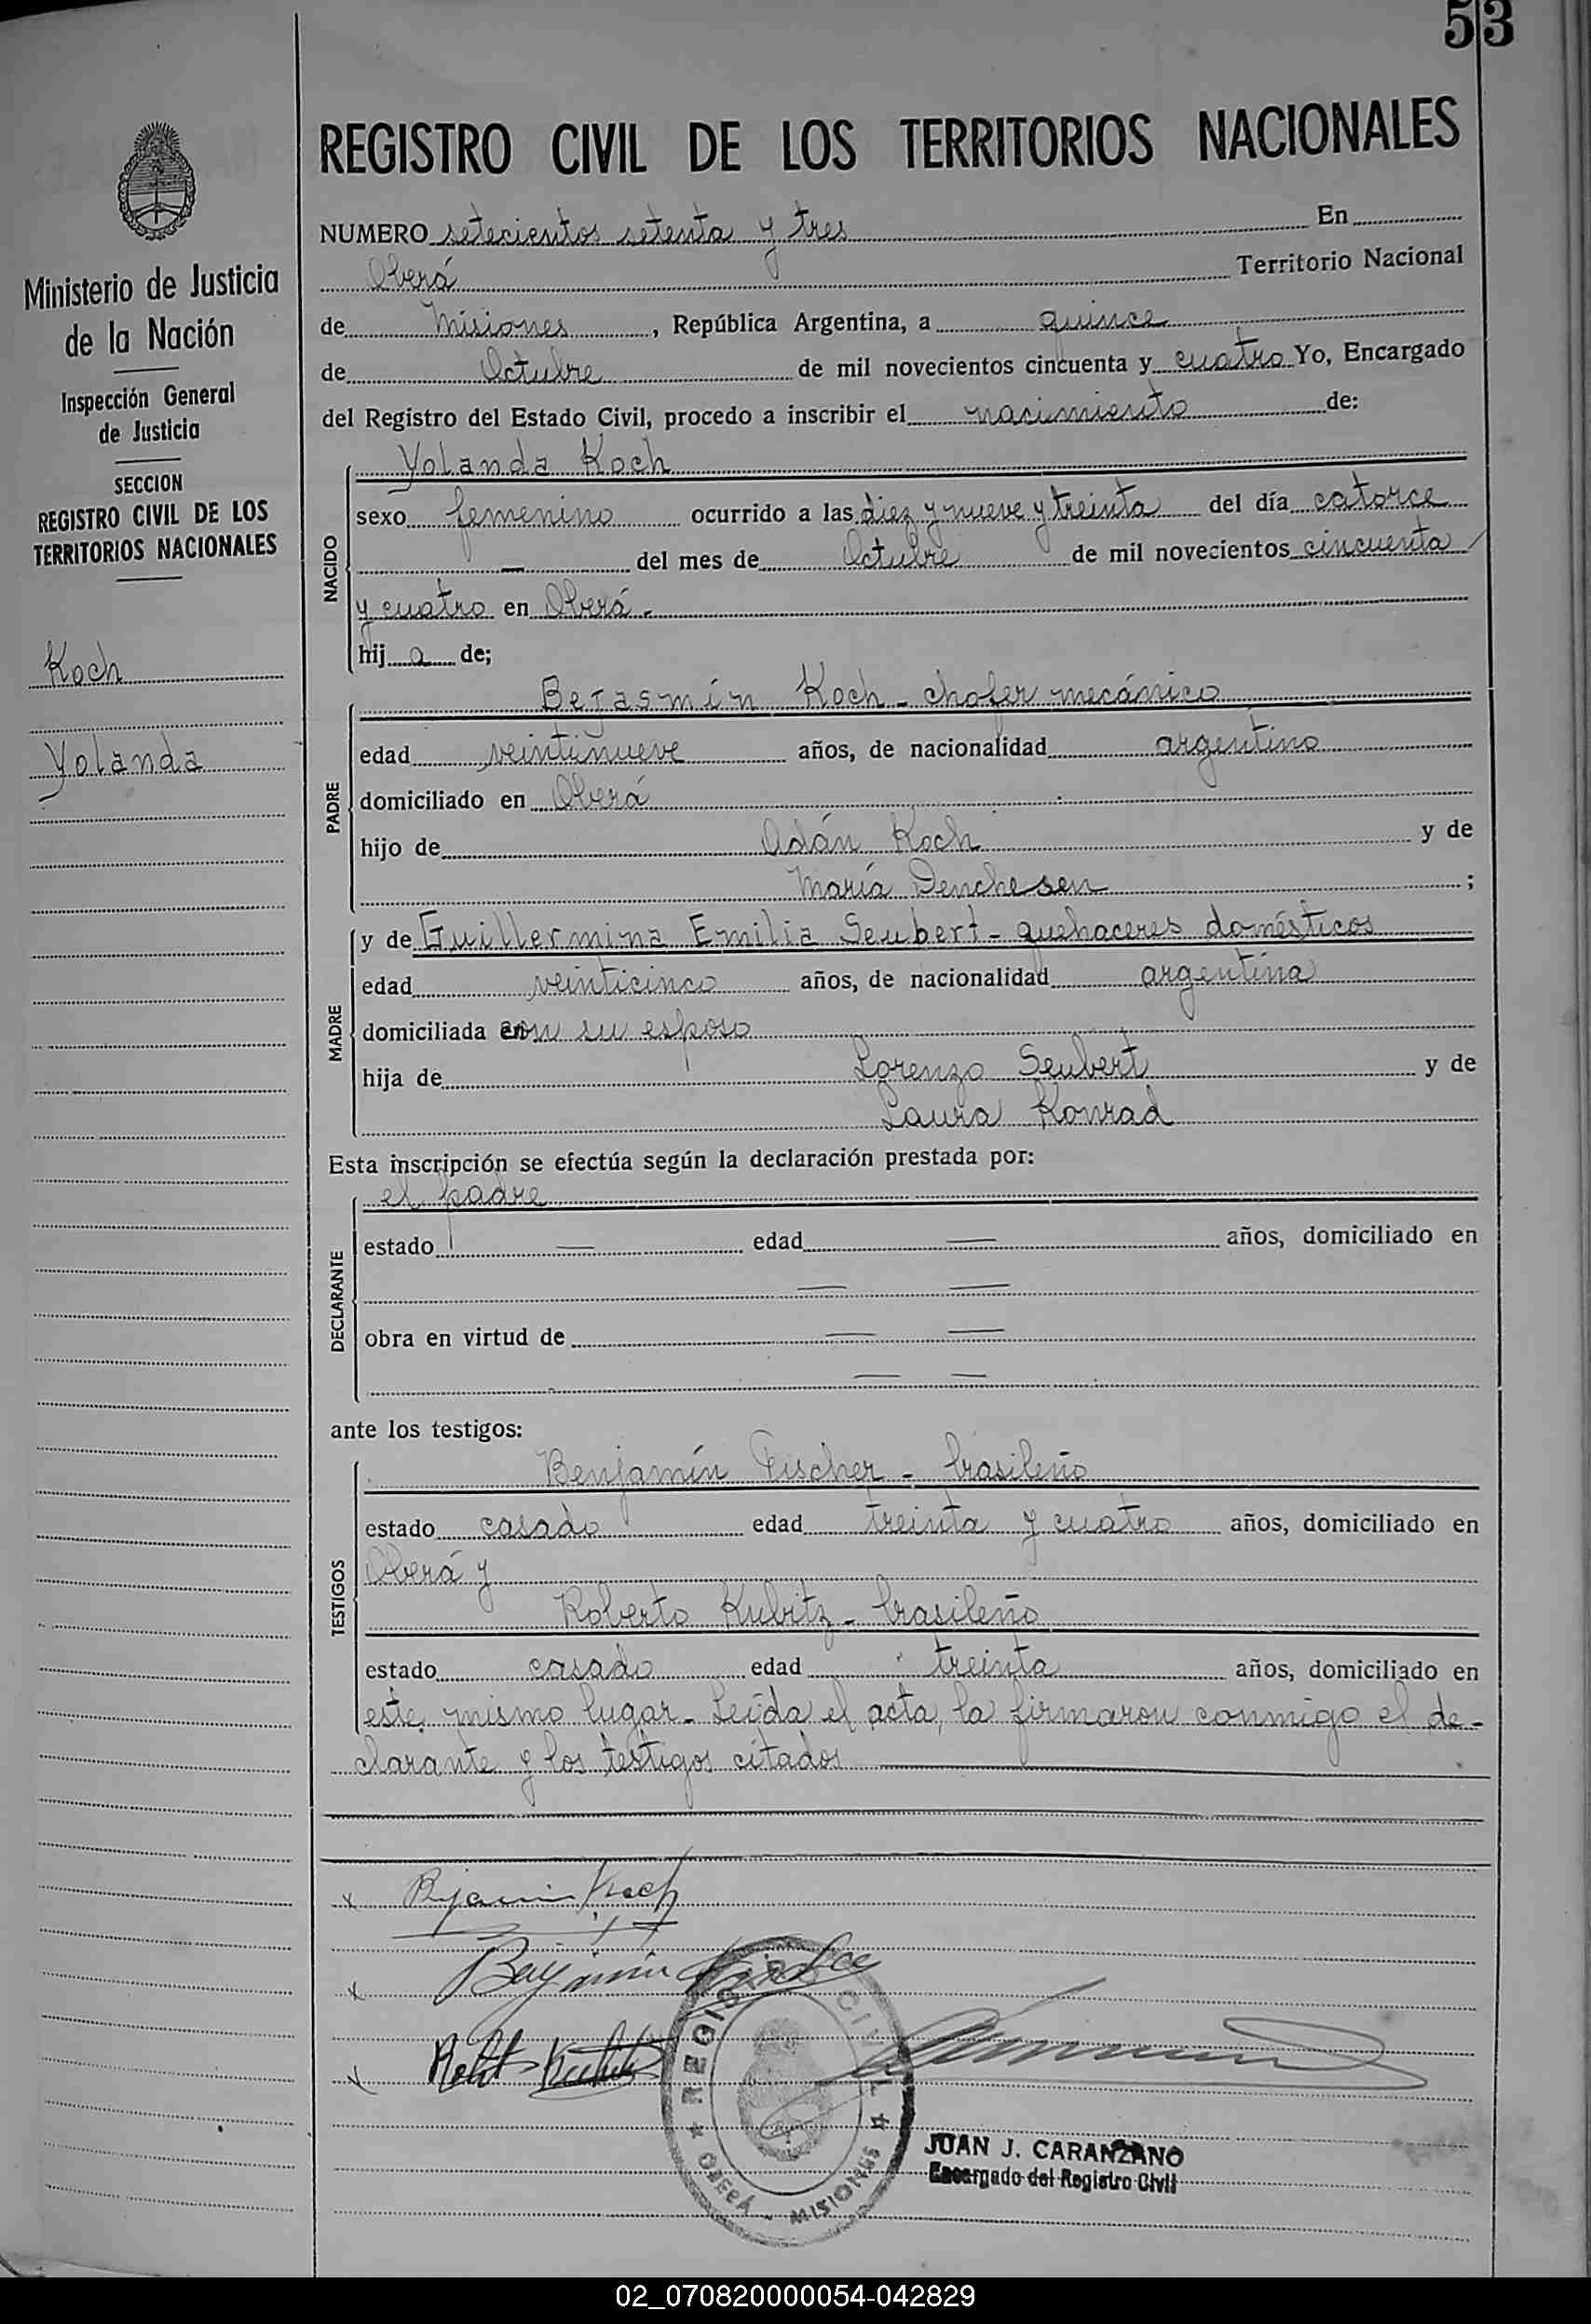 53
REGISTRO CIVIL DE LOS TERRITORIOS NACIONALES
Ministerio de Justicia
de la Nación
Inspección General
de Justicia
SECCION
REGISTRO CIVIL DE LOS
TERRITORIOS NACIONALES
Koch
Yolanda
NUMERO setecientos setenta y tres En
Oberá Territorio Nacional
de Misiones, República Argentina, a quince
de Octubre de mil novecientos cincuenta y cuatro Yo, Encargado
del Registro del Estado Civil, procedo a inscribir el nacimiento de:
NACIDO
Yolanda Koch
sexo femenino ocurrido a las diez y nueve y treinta del día catorce
— del mes de Octubre de mil novecientos cincuenta
y cuatro en Oberá.-
hij a de;
PADRE
Bejasmín Koch - chofer mecánico
edad veintinueve años, de nacionalidad argentino
domiciliado en Oberá
hijo de Adán Koch y de
María Denchesen ;
MADRE
y de Guillermina Emilia Seubert - quehaceres domésticos
edad veinticinco años, de nacionalidad argentina
domiciliada con su esposo
hija de Lorenzo Seubert y de
Laura Konrad
Esta inscripción se efectúa según la declaración prestada por:
DECLARANTE
el padre
estado — edad — años, domiciliado en
— —
obra en virtud de — —
— —
ante los testigos:
TESTIGOS
Benjamín Fischer - brasileño
estado casado edad treinta y cuatro años, domiciliado en
Oberá y
Roberto Kubitz - brasileño
estado casado edad treinta años, domiciliado en
este mismo lugar - Leída el acta, la firmaron conmigo el de-
clarante y los testigos citados
x Bejamin Koch
x
x
REGISTRO CIVIL
OBERÁ - MISIONES
JUAN J. CARANZANO
Encargado del Registro Civil
02_070820000054-042829